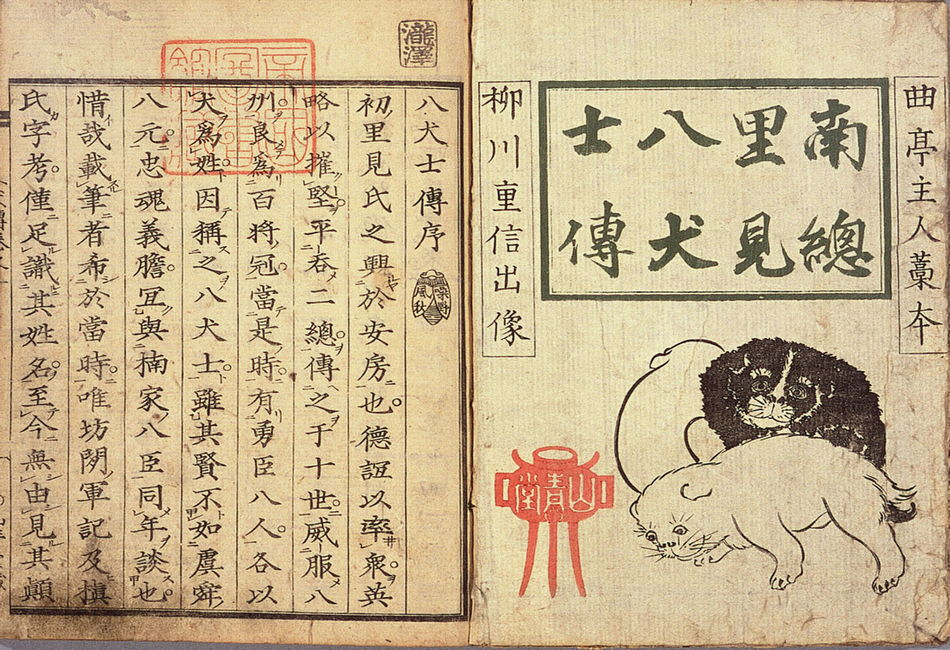 曲亭主人藁本
南總
里見
八犬
士傳
柳川重信出像
山青堂
瀧澤
八犬士傳序
初里見氏之興於安房也。德誼以率衆。英
略以摧堅。平呑二總。傳之于十世。威服八
州。良爲百将冠。當是時。有勇臣八人。各以
犬爲姓。因稱之八犬士。雖其賢不如虞舜
八元。忠魂義膽。冝與楠家八臣同年談也。
惜哉載筆者希於當時。唯坊閒軍記及槙
氏字考。僅足識其姓名。至今無由見其顛